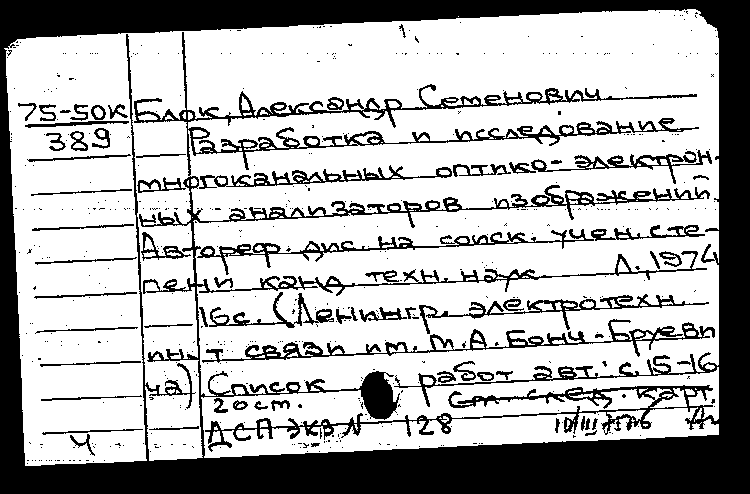 75-50к Блок, Александр Семенович.
389 Разработка и исследование
многоканальных оптико-электрон-
ных анализаторов изображений.
Автореф. дис. на соиск. учен. сте-
пени канд. техн. наук. Л., 1974
16с. (Ленингр. электротехн.
ин-т связи им. М.А. Бонч-Бруеви
ча) Список работ авт.: с. 15-16
20 ст. См. след. карт.
Ч ДСП экз N 128